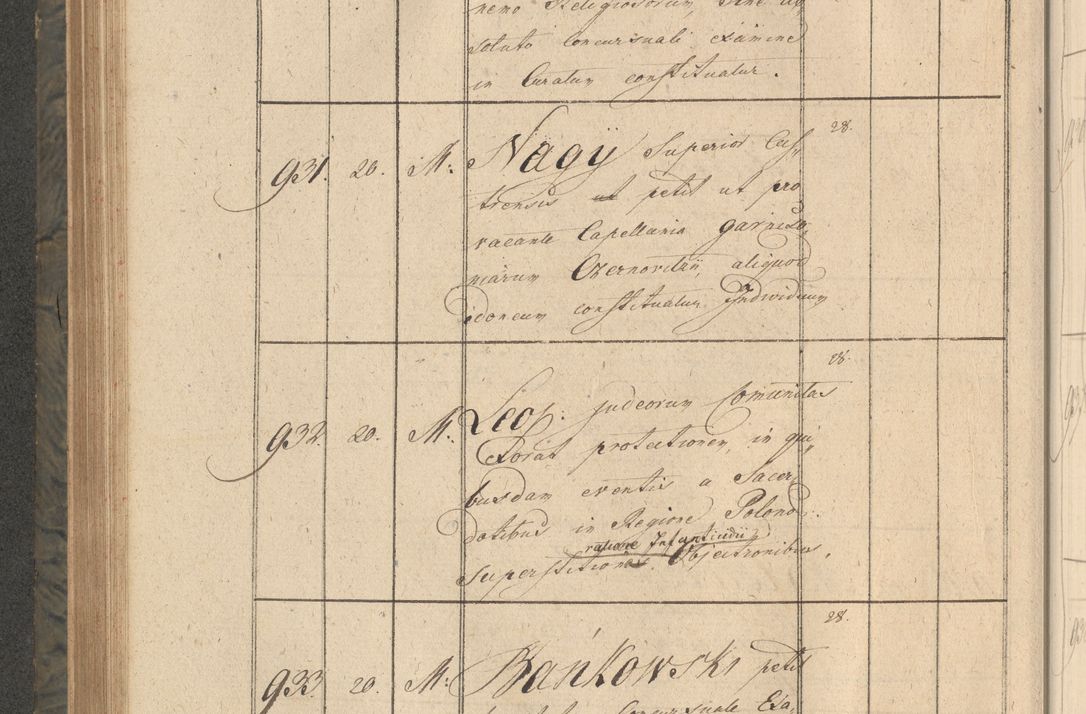 nemo Religiosorum, sine ab
soluto Concursuali examine
in Curatum constituatur.
28.
931. 20. M: Nagÿ Superior Cas,,
trensis ut petit ut pro
vacante Capellania garniso,,
niarum Czernovitzii, aliquod
idoneum constituatur Individuum
28.
932. 20. M: Leop: Judeorum Comunitas
Eorat protectionem, in qui,,
busdam eventis a Sacer,,
dotibus in Regione Polono.
ratione Infanticidii
superstitiones. Objectionibus.
28.
933. 20. M: Bańkowski petit
Concursuale Exa,,